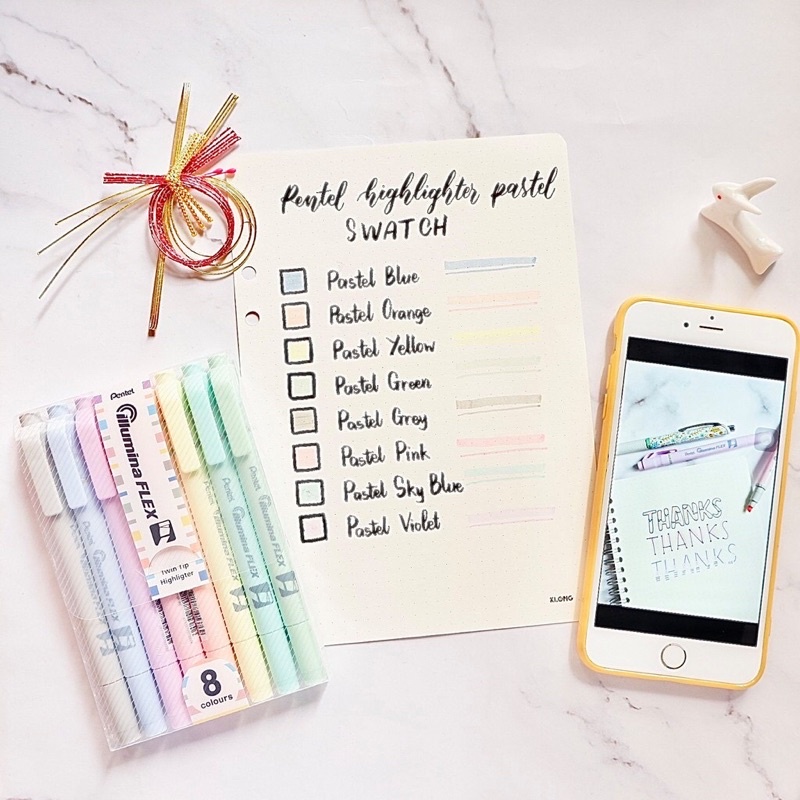 Pentel highlighter pastel
SWATCH
Pastel Blue
Pastel Orange
Pastel Yellow
Pastel Green
Pastel Grey
Pastel Pink
Pastel Sky Blue
Pastel Violet
Pentel
illumina FLEX
Twin Tip
Highligter
8
colours
illumina FLEX
Pentel
illumina FLEX
illumina FLEX
illumina FLEX
THANKS
THANKS
THANKS